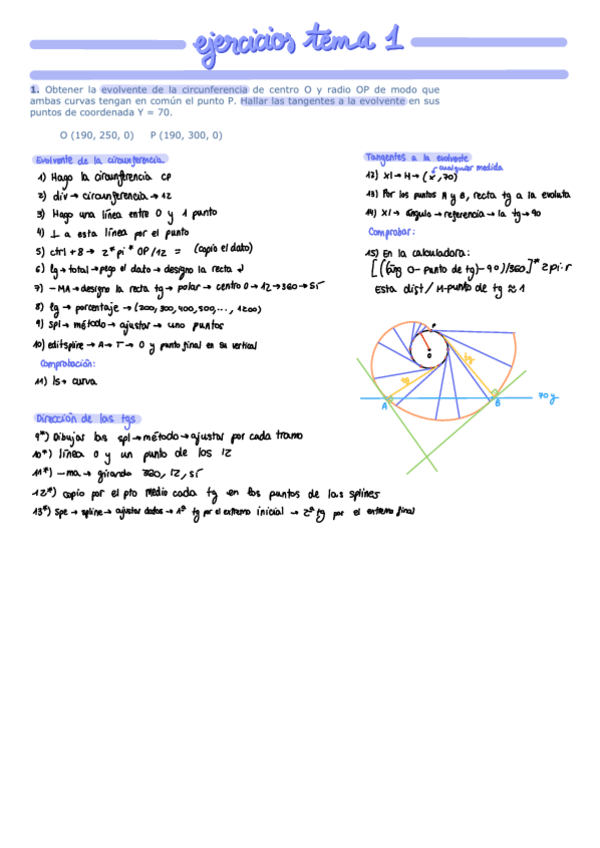 ejercicios tema 1
1. Obtener la evolvente de la circunferencia de centro O y radio OP de modo que
ambas curvas tengan en común el punto P. Hallar las tangentes a la evolvente en sus
puntos de coordenada Y = 70.
O (190, 250, 0) P (190, 300, 0)
Evolvente de la circunferencia
1) Hago la circunferencia CP
2) div → circunferencia → 12
3) Hago una línea entre O y 1 punto
4) ⊥ a esta línea por el punto
5) ctrl + 8 → 2*pi* OP/12 = (copio el dato)
6) lg → total → pego el dato → designo la recta ↲
7) -MA → designo la recta tg → polar → centro O → 12 → 360 → Sí
8) lg → porcentaje → (200, 300, 400, 500, ..., 1200)
9) spl → método → ajustar → uno puntos
10) editspline → A → T → O y punto final en su vertical
Comprobación:
11) ls → curva
Dirección de las tgs
9*) Dibujar las spl → método → ajustar por cada tramo
10*) línea O y un punto de los 12
11*) -ma → girando 360, 12, sí
12*) copio por el pto medio cada tg en los puntos de las splines
13*) Spe → spline → ajustar datos → 1ª tg por el extremo inicial → 2ª tg por el extremo final
Tangentes a la evolvente
cualquier medida
12) Xl → H → (x, 70)
13) Por los puntos A y B, recta tg a la evoluta
14) Xl → ángulo → referencia → la tg → 90
Comprobar:
15) En la calculadora:
[((áng O - punto de tg) - 90)/360]* 2pi·r
Esta dist / A-punto de tg ≈ 1
P
O
tg
tg
A
B
70 y